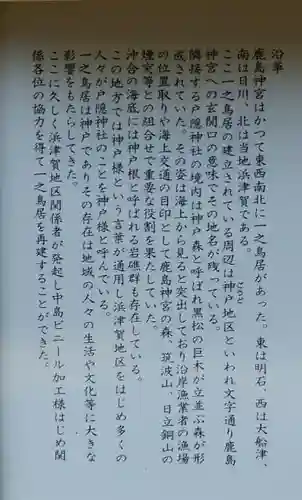 沿革
鹿島神宮はかつて東西南北に一之鳥居があった。東は明石、西は大船津、
南は日川、北は当地浜津賀である。
ここ一之鳥居の建立されている周辺は神戸地区といわれ文字通り鹿島
神宮への玄関口の意味でその地名が残っている。
隣接する戸隠神社の境内は神戸森と呼ばれ黒松の巨木が立並ぶ森が形
成されていた。その姿は海上から見ると突出しており沿岸漁業者の漁場
の位置取りや海上交通の目印として鹿島神宮の森、筑波山、日立銅山の
煙突等との組合せで重要な役割を果たしていた。
沖合の海底には神戸根と呼ばれる岩礁群も存在している。
この地方では神戸様という言葉が通用し浜津賀地区をはじめ多くの
人々が戸隠神社のことを神戸様と呼んでいる。
一之鳥居は神戸でありその存在は地域の人々の生活や文化等に大きな
影響をもたらしてきた。
ここに久しく浜津賀地区関係者が発起し中島ビニール加工様はじめ関
係各位の協力を得て一之鳥居を再建することができた。